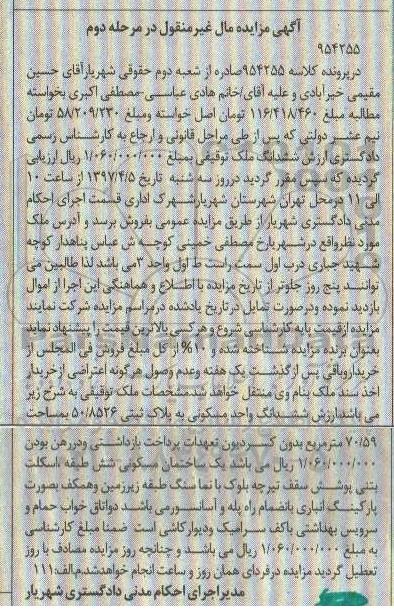 آگهی مزایده مال غیرمنقول در مرحله دوم
۹۵۴۲۵۵
درپرونده کلاسه ۹۵۴۲۵۵صادره از شعبه دوم حقوقی شهریارآقای حسین
مقیمی خیرآبادی و علیه آقای/خانم هادی عباسی-مصطفی اکبری بخواسته
مطالبه مبلغ ۱۱۶/۴۱۸/۴۶۰ تومان اصل خواسته ومبلغ ۵۸/۲۰۹/۲۳۰ تومان
نیم عشر دولتی که پس از طی مراحل قانونی و ارجاع به کارشناس رسمی
دادگستری ارزش ششدانگ ملک توقیفی بمبلغ ۱/۰۶۰/۰۰۰/۰۰۰ ریال ارزیابی
گردیده که سپس مقرر گردید درروز سه شنبه تاریخ ۱۳۹۷/۴/۵ از ساعت ۱۰
الی ۱۱ درمحل تهران شهرستان شهریارشهرک اداری قسمت اجرای احکام
مدنی دادگستری شهریار از طریق مزایده عمومی بفروش برسد و آدرس ملک
مورد نظرواقع درشهریارخ مصطفی خمینی کوچه ش عباس پناهدار کوچه
شهید جباری درب اول سمت راست ط اول واحد ۳می باشد لذا طالبین می
توانند پنج روز جلوتر از تاریخ مزایده با اطلاع و هماهنگی این اجرا از اموال
بازدید نموده ودرصورت تمایل درتاریخ یادشده درمراسم مزایده شرکت نمایند
مزایده ازقیمت پایه کارشناسی شروع و هرکسی بالاترین قیمت را پیشنهاد نماید
بعنوان برنده مزایده شناخته شده و ۱۰% از کل مبلغ فروش فی المجلس از
خریداروباقی پس ازگذشت یک هفته وعدم وصول هرگونه اعتراضی ازخریدار
اخذ سند ملک بنام وی منتقل خواهد شد.مشخصات ملک توقیفی به شرح زیر
می باشد:ارزش ششدانگ واحد مسکونی به پلاک ثبتی ۵۰/۸۵۲۶ بمساحت
۷۰/۵۹ مترمربع بدون کسردیون تعهدات پرداخت بازداشتی ودررهن بودن
۱/۰۶۰/۰۰۰/۰۰۰ ریال می باشد یک ساختمان مسکونی شش طبقه اسکلت
بتنی پوشش سقف تیرچه بلوک با نما سنگ طبقه زیرزمین وهمکف بصورت
پارکینگ انباری بانضمام راه پله و آسانسورمی باشد دواتاق خواب حمام و
سرویس بهداشتی باکف سرامیک ودیوارکاشی است ضمنا مبلغ کارشناسی
به مبلغ ۱/۰۶۰/۰۰۰/۰۰۰ ریال می باشد و چنانچه روز مزایده مصادف با روز
تعطیل گردید مزایده درفردای همان روز و ساعت انجام خواهدشد.م.الف:۱۱۱
مدیراجرای احکام مدنی دادگستری شهریار